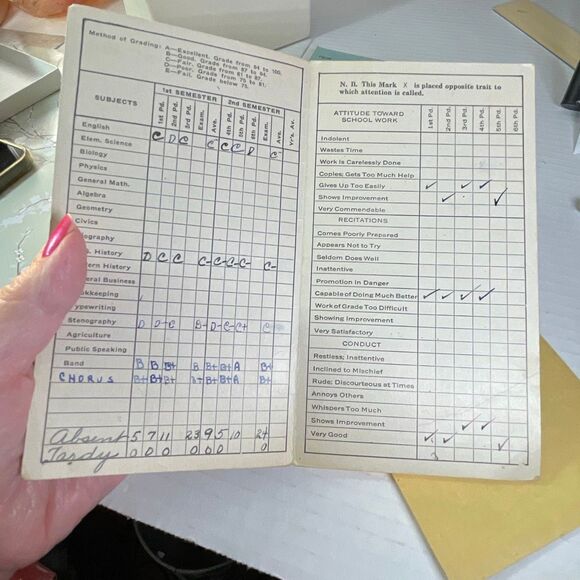 Method of Grading: A—Excellent. Grade from 94 to 100.
B—Good. Grade from 87 to 94.
C—Fair. Grade from 81 to 87.
D—Poor. Grade from 75 to 81.
E—Fail. Grade below 75.
SUBJECTS 1st SEMESTER 2nd SEMESTER
1st Pd. 2nd Pd. 3rd Pd. Exam. Ave. 4th Pd. 5th Pd. 6th Pd. Exam. Ave. Yr's. Av.
English C D C C C C D C
Elem. Science
Biology
Physics
General Math.
Algebra
Geometry
Civics
ography
History D C C C- C- C- C- C-
ern History
eral Business
kkeeping
ypewriting
Stenography D D-C B+ D-C-C+ C
Agriculture
Public Speaking
Band B B B+ B B+ B+ A B+
CHORUS B+ B+ B+ B+ B+ A B+
Absent 5 7 11 23 9 5 10 24
Tardy 0 0 0 0 0 0 0
N. B. This Mark X is placed opposite trait to
which attention is called.
ATTITUDE TOWARD
SCHOOL WORK
1st Pd. 2nd Pd. 3rd Pd. 4th Pd. 5th Pd. 6th Pd.
Indolent
Wastes Time
Work is Carelessly Done
Copies; Gets Too Much Help
Gives Up Too Easily ✓ ✓ ✓
Shows Improvement ✓ ✓
Very Commendable
RECITATIONS
Comes Poorly Prepared
Appears Not to Try
Seldom Does Well
Inattentive
Promotion in Danger
Capable of Doing Much Better ✓ ✓ ✓ ✓
Work of Grade Too Difficult
Showing Improvement
Very Satisfactory
CONDUCT
Restless; Inattentive
Inclined to Mischief
Rude; Discourteous at Times
Annoys Others
Whispers Too Much
Shows Improvement ✓ ✓
Very Good ✓ ✓ ✓